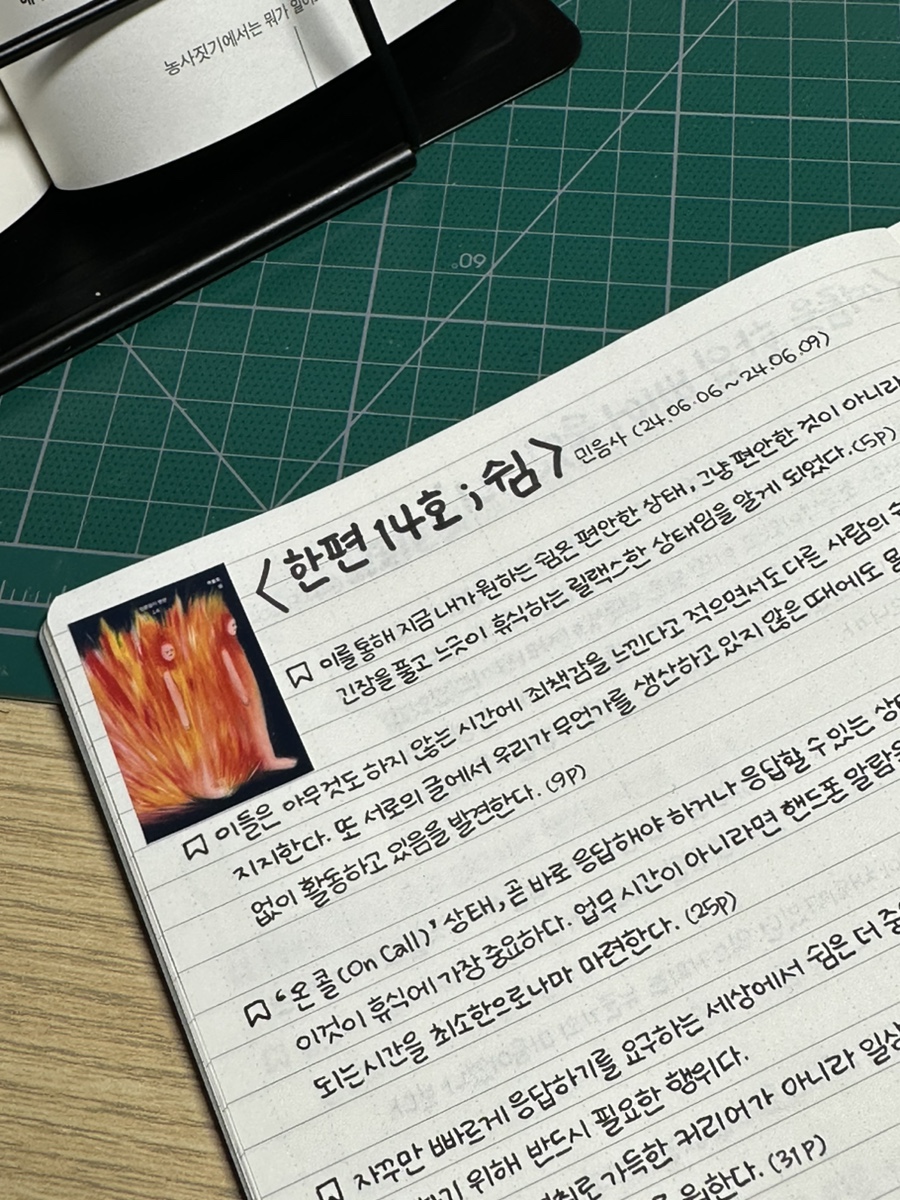 농사짓기에서는 뭐가
60.
<한편 14호; 쉼> 민음사 (24.06.06~24.06.09)
이를 통해 지금 내가 원하는 쉼은 편안한 상태, 그냥 편안한 것이 아니라
긴장을 풀고 느긋이 휴식하는 릴랙스한 상태임을 알게 되었다. (5p)
이들은 아무것도 하지 않는 시간에 죄책감을 느낀다고 적으면서도 다른 사람의
지지한다. 또 서로의 글에서 우리가 무언가를 생산하고 있지 않은 때에도
없이 활동하고 있음을 발견한다. (9p)
'온 콜(On Call)' 상태, 곧 바로 응답해야 하거나 응답할 수 있는
이것이 휴식에 가장 중요하다. 업무 시간이 아니라면 핸드폰 알람을
되는 시간을 최소한으로나마 마련한다. (25p)
자꾸만 빠르게 응답하기를 요구하는 세상에서 쉼은 더
위해 반드시 필요한 행위다.
가득한 커리어가 아니라
원한다. (31p)